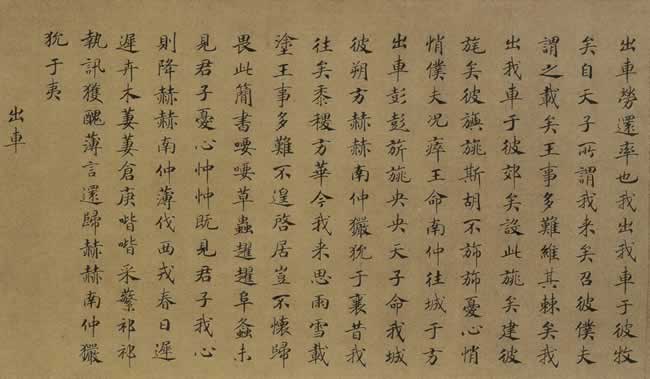 出車勞還率也我出我車于彼牧
矣自天子所謂我来矣召彼僕夫
謂之載矣王事多難維其棘矣我
出我車于彼郊矣設此旐矣建彼
旄矣彼旟旐斯胡不斾斾憂心悄
悄僕夫况瘁王命南仲往城于方
出車彭彭旂旐央央天子命我城
彼朔方赫赫南仲玁狁于襄昔我
往矣黍稷方華今我来思雨雪載
塗王事多難不遑啓居豈不懷歸
畏此簡書喓喓草蟲趯趯阜螽未
見君子憂心忡忡既見君子我心
則降赫赫南仲薄伐西戎春日遲
遲卉木萋萋倉庚喈喈采蘩祁祁
執訊獲醜薄言還歸赫赫南仲玁
狁于夷
出車